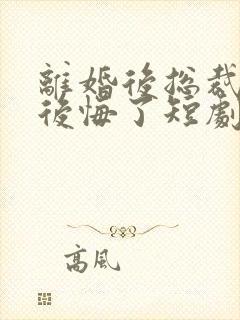 離婚後總裁
後悔了短劇
高風